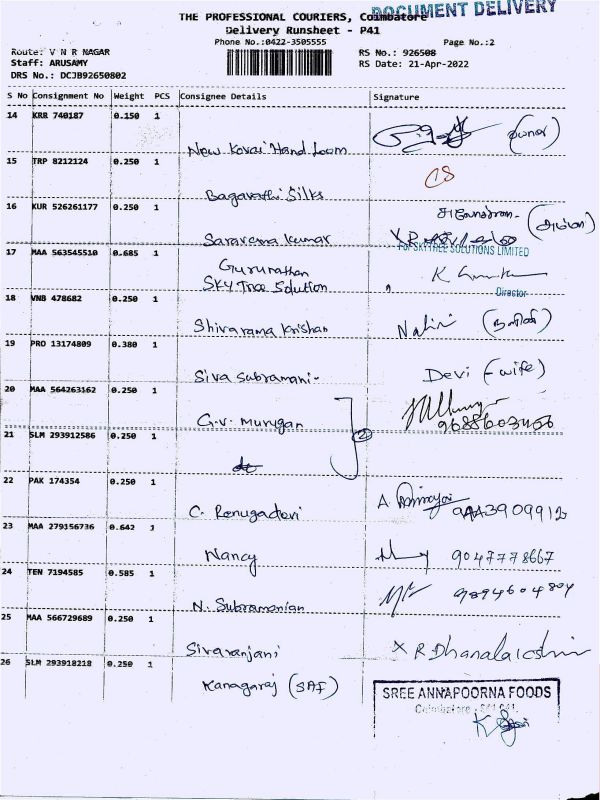 DOCUMENT DELIVERY
THE PROFESSIONAL COURIERS, Coimbatore
Delivery Runsheet - P41
Phone No.:0422-3505555
Page No.:2
Route: V N R NAGAR
RS No.: 926508
Staff: ARUSAMY
RS Date: 21-Apr-2022
DRS No.: DCJB92650802
S No Consignment No Weight PCS Consignee Details Signature
14 KRR 740187 0.150 1
New Kovai Hand Loom
15 TRP 8212124 0.250 1
Bagavathi Silks
16 KUR 526261177 0.250 1
Saravana Kumar
17 MAA 563545510 0.685 1
Gurunathan
SKY Tree Solution
For SKYTREE SOLUTIONS LIMITED
Director
18 VNB 478682 0.250 1
Shivarama Krishan
Nalini (நளினி)
19 PRO 13174809 0.380 1
Siva Subramani-
Devi (-wife)
20 MAA 564263162 0.250 1
G.V. Murugan
21 SLM 293912586 0.250 1
2
22 PAK 174354 0.250 1
C. Renugadevi
23 MAA 279156736 0.642 1
Nancy
9047778667
24 TEN 7194585 0.585 1
N. Subramanian
9894604804
25 MAA 566729689 0.250 1
Sivaranjani
X R Dhanalakshmi
26 SLM 293918218 0.250 1
Kanagaraj (SAF)
SREE ANNAPOORNA FOODS
Coimbatore - 641 041.